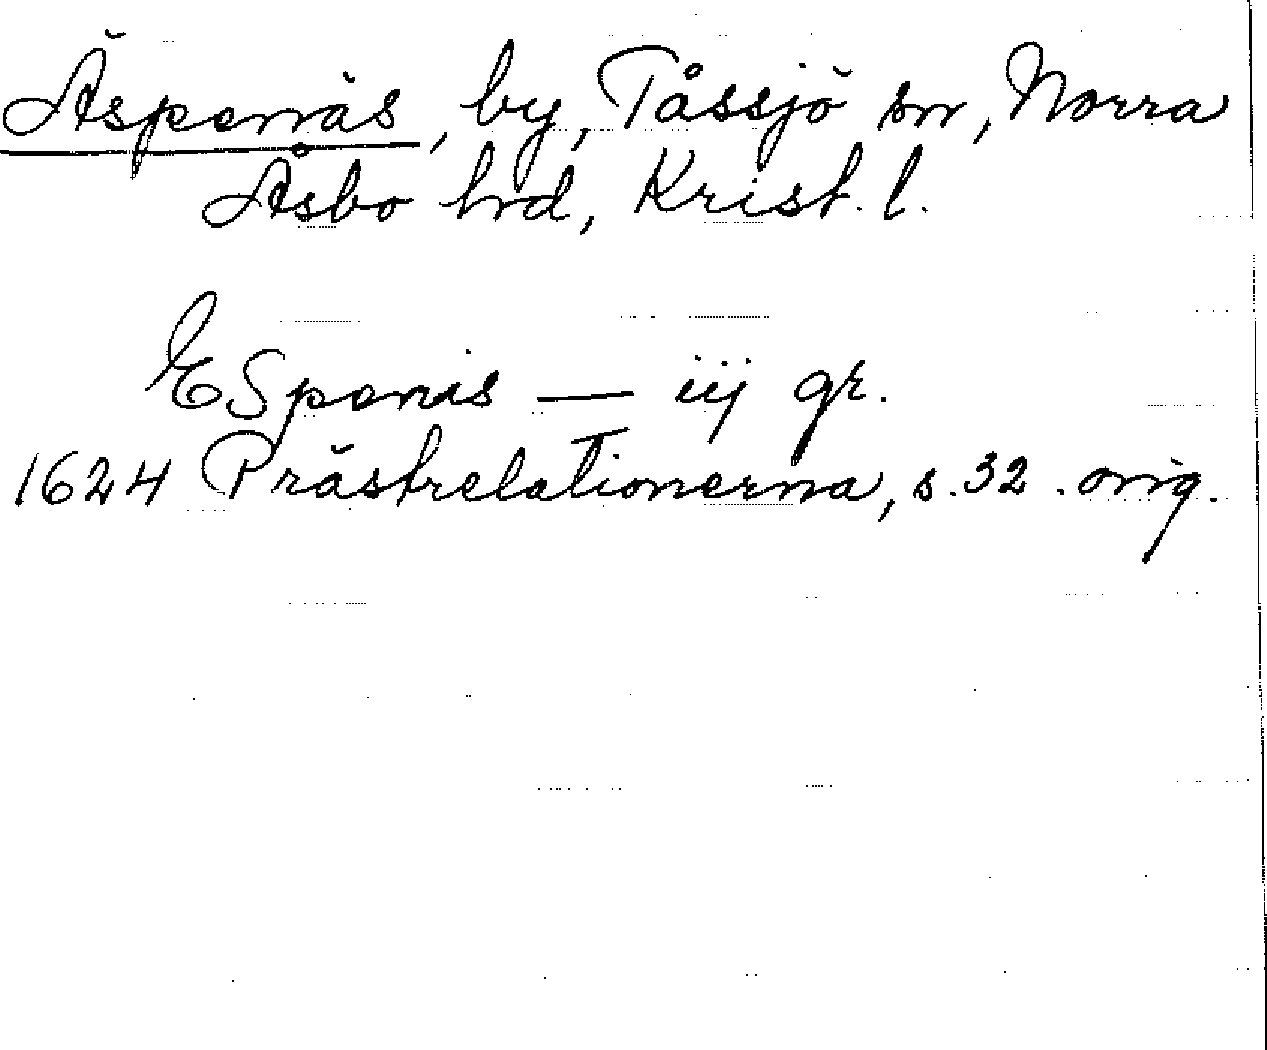 Äspenäs, by, Tåssjö sn, Norra
Åsbo hrd, Krist. l.
ESpenis — iij gr.
1624 Prästrelationerna, s. 32. orig.